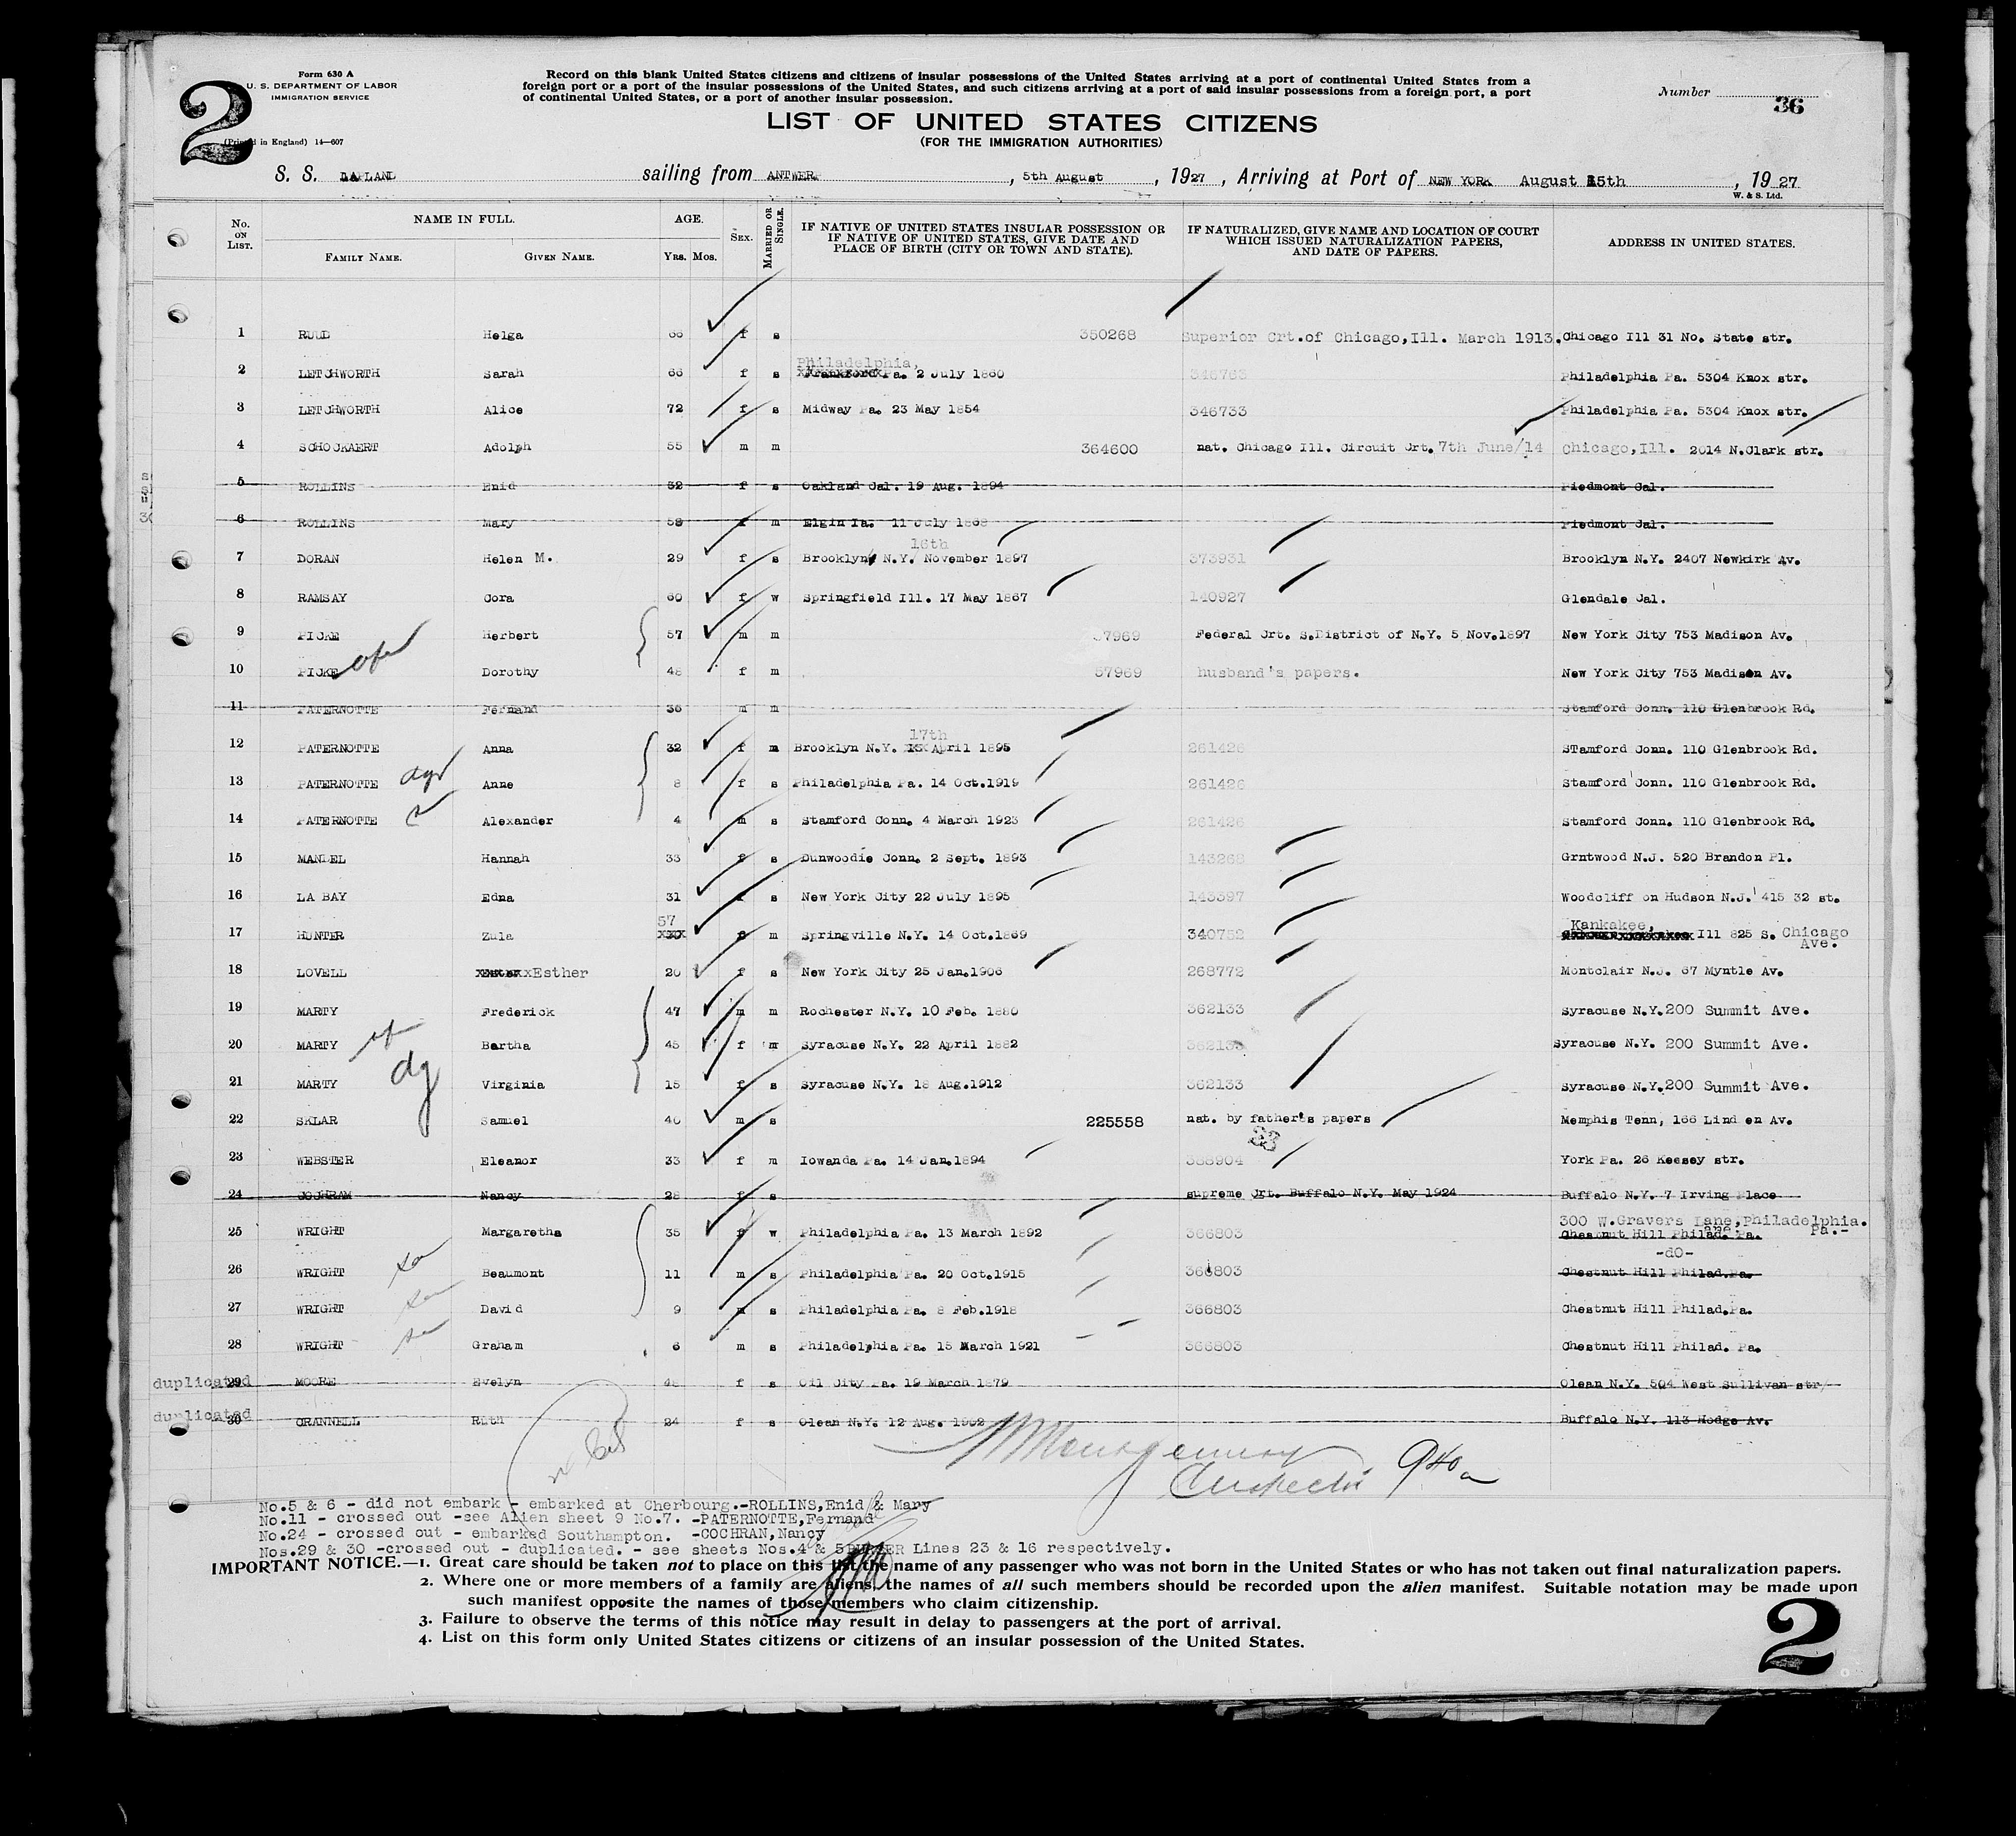 2
Form 630 A
U. S. DEPARTMENT OF LABOR
IMMIGRATION SERVICE
(Printed in England) 14—607
Record on this blank United States citizens and citizens of insular possessions of the United States arriving at a port of continental United States from a
foreign port or a port of the insular possessions of the United States, and such citizens arriving at a port of said insular possessions from a foreign port, a port
of continental United States, or a port of another insular possession.
Number 36
LIST OF UNITED STATES CITIZENS
(FOR THE IMMIGRATION AUTHORITIES)
S. S. LAPLAND sailing from ANTWERP, 5th August, 1927, Arriving at Port of NEW YORK August 15th, 1927
W. & S. Ltd.
No. ON LIST. NAME IN FULL. AGE. SEX. MARRIED OR SINGLE. IF NATIVE OF UNITED STATES INSULAR POSSESSION OR IF NATIVE OF UNITED STATES, GIVE DATE AND PLACE OF BIRTH (CITY OR TOWN AND STATE). IF NATURALIZED, GIVE NAME AND LOCATION OF COURT WHICH ISSUED NATURALIZATION PAPERS, AND DATE OF PAPERS. ADDRESS IN UNITED STATES.
FAMILY NAME. GIVEN NAME. YRS. MOS.
1 RUUD Helga 66 f s 350268 Superior Crt.of Chicago,Ill. March 1913. Chicago Ill 31 No. State str.
Philadelphia,
2 LETCHWORTH Sarah 66 f s Pa. 2 July 1860 346763 Philadelphia Pa. 5304 Knox str.
3 LETCHWORTH Alice 72 f s Midway Pa. 23 May 1854 346733 Philadelphia Pa. 5304 Knox str.
4 SCHOCKAERT Adolph 55 m m 364600 nat. Chicago Ill. Circuit Crt. 7th June/14 Chicago,Ill. 2014 N.Clark str.
5 ROLLINS Enid 32 f s Oakland Cal. 19 Aug. 1894 Piedmont Cal.
6 ROLLINS Mary 59 f m Elgin Ia. 11 July 1868 Piedmont Cal.
16th
7 DORAN Helen M. 29 f s Brooklyn N.Y. November 1897 373931 Brooklyn N.Y. 2407 Newkirk Av.
8 RAMSAY Cora 60 f w Springfield Ill. 17 May 1867 140927 Glendale Cal.
9 PICKE Herbert 57 m m 57969 Federal Crt. S.District of N.Y. 5 Nov.1897 New York City 753 Madison Av.
10 PICKE Dorothy 48 f m 57969 husband's papers. New York City 753 Madison Av.
11 PATERNOTTE Fernand 36 m m Stamford Conn. 110 Glenbrook Rd.
17th
12 PATERNOTTE Anna 32 f m Brooklyn N.Y. April 1895 261426 STamford Conn. 110 Glenbrook Rd.
13 PATERNOTTE Anne 8 f s Philadelphia Pa. 14 Oct.1919 261426 Stamford Conn. 110 Glenbrook Rd.
14 PATERNOTTE Alexander 4 m s Stamford Conn. 4 March 1923 261426 Stamford Conn. 110 Glenbrook Rd.
15 MANDEL Hannah 33 f s Dunwoodie Conn. 2 Sept. 1893 143268 Grntwood N.J. 520 Brandon Pl.
16 LA BAY Edna 31 f s New York City 22 July 1895 143397 Woodcliff on Hudson N.J. 415 32 st.
57 Kankakee,
17 HUNTER Zula f m Springville N.Y. 14 Oct.1869 340752 Ill 825 S. Chicago Ave.
18 LOVELL Esther 20 f s New York City 25 Jan.1906 268772 Montclair N.J. 67 Myntle Av.
19 MARTY Frederick 47 m m Rochester N.Y. 10 Feb. 1880 362133 Syracuse N.Y.200 Summit Ave.
20 MARTY Bertha 45 f m Syracuse N.Y. 22 April 1882 362133 Syracuse N.Y. 200 Summit Ave.
dg
21 MARTY Virginia 15 f s Syracuse N.Y. 18 Aug.1912 362133 Syracuse N.Y.200 Summit Ave.
22 SKLAR Samuel 40 m s 225558 nat. by father's papers Memphis Tenn, 166 Lind en Av.
23 WEBSTER Eleanor 33 f m Iowanda Pa. 14 Jan.1894 388904 York Pa. 26 Keesey str.
24 COCHRAM Nancy 28 f s supreme Crt. Buffalo N.Y. May 1924 Buffalo N.Y. 7 Irving Place
300 W.Gravers Lane,Philadelphia. Pa.-
25 WRIGHT Margaretha 35 f w Philadelphia Pa. 13 March 1892 366803 Chesnut Hill Philad. Pa.
-do-
26 WRIGHT Beaumont 11 m s Philadelphia Pa. 20 Oct.1915 366803 Chestnut Hill Philad.Pa.
27 WRIGHT David 9 m s Philadelphia Pa. 8 Feb.1918 366803 Chestnut Hill Philad.Pa.
28 WRIGHT Graham 6 m s Philadelphia Pa. 15 March 1921 366803 Chestnut Hill Philad. Pa.
duplicated 29 MOORE Evelyn 48 f s Oil City Pa. 19 March 1879 Olean N.Y. 504 West Sullivan str
duplicated 30 CRANNELL Ruth 24 f s Olean N.Y. 12 Aug. 1902 Buffalo N.Y. 113 Hodge Av.
Montgomery
Inspector 940a
No.5 & 6 - did not embark - embarked at Cherbourg.-ROLLINS,Enid & Mary
No.11 - crossed out -see Alien sheet 9 No.7. -PATERNOTTE,Fernand
No.24 - crossed out - embarked Southampton. -COCHRAN,Nancy
Nos.29 & 30 -crossed out - duplicated. - see sheets Nos.4 & 5 Lines 23 & 16 respectively.
IMPORTANT NOTICE.—1. Great care should be taken not to place on this list the name of any passenger who was not born in the United States or who has not taken out final naturalization papers.
2. Where one or more members of a family are aliens, the names of all such members should be recorded upon the alien manifest. Suitable notation may be made upon
such manifest opposite the names of those members who claim citizenship.
3. Failure to observe the terms of this notice may result in delay to passengers at the port of arrival.
4. List on this form only United States citizens or citizens of an insular possession of the United States.
2